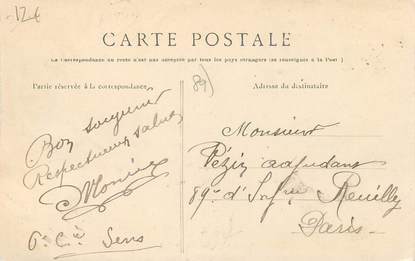 12€
CARTE POSTALE
La Correspondance au recto n'est pas acceptée par tous les pays étrangers (se renseigner à la Poste)
Partie réservée à la correspondance
Adresse du destinataire
89)
Bon souvenir
Respectueux saluts
6e Cie Sens
Monsieur
Pézix adjudant
89e d'Infie Reuilly
Paris